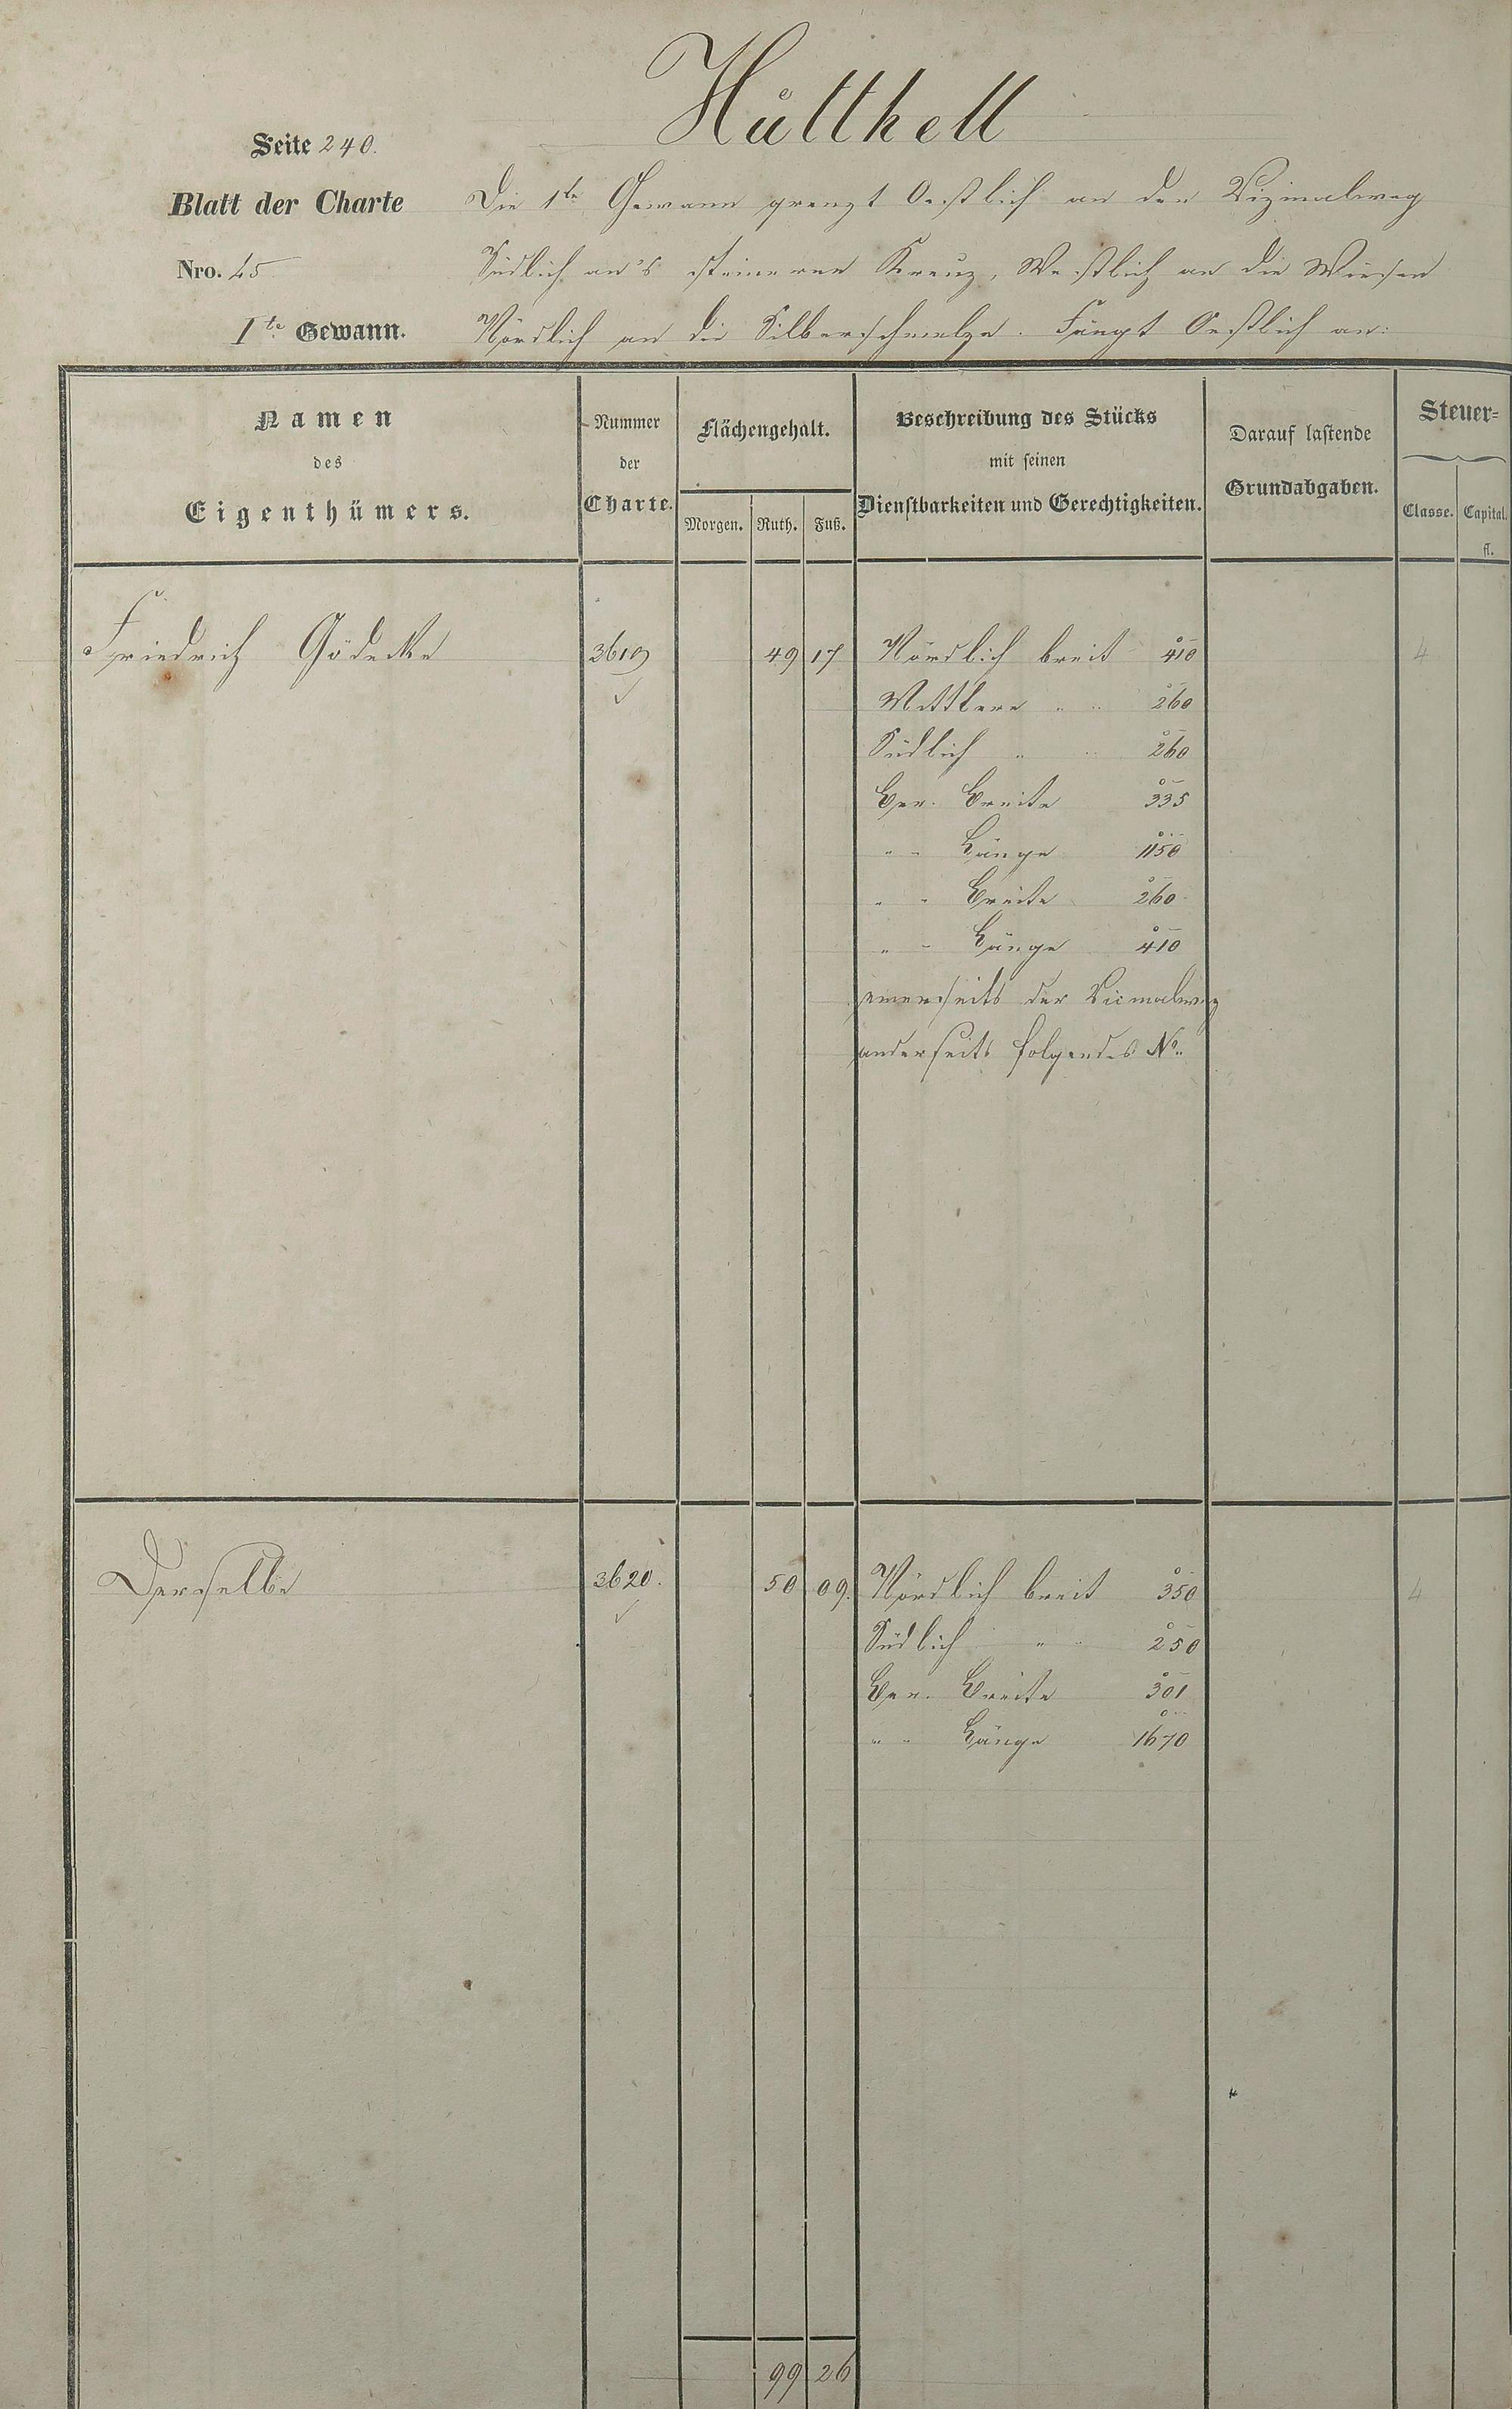 Hütthell
Seite 240.
Blatt der Charte
Nro. 45
1te Gewann.
Die 1te Gewann grenzt Oestlich an den Vizinalweg
Südlich an's steinernen Kreuz, Westlich an die Wiesen
Nördlich an die Silberschmelze. Fängt Oestlich an:
Namen
des
Eigenthümers.
Nummer
der
Charte.
Flächengehalt.
Morgen. Ruth. Fuß.
Beschreibung des Stücks
mit seinen
Dienstbarkeiten und Gerechtigkeiten.
Darauf lastende
Grundabgaben.
Steuer=
Classe. Capital.
fl.
Friedrich Gödecke 3619 49 17 Nördlich breit 410 4
Mittlere " " 260
Südlich " " 260
Ber. Breite 335
" " Länge 1150
" " Breite 260
" " Länge 410
einerseits der Vicinalweg
anderseits folgendes No.
Derselbe 3620. 50 09. Nördlich breit 350 4
Südlich " " 250
Ber. Breite 301
" " Länge 1670
99 26